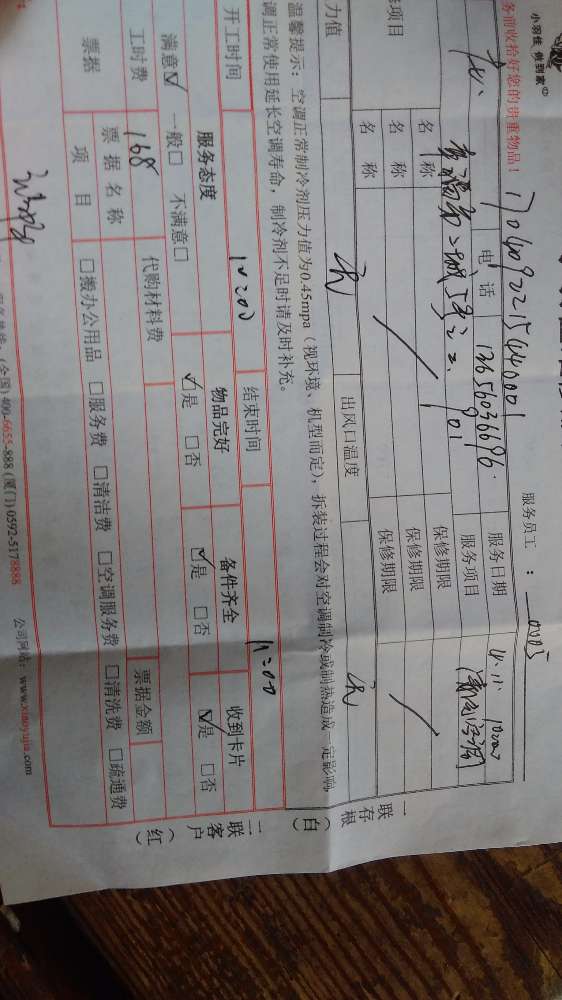 小羽佳 做到家
务前收拾好您的贵重物品！
服务员工：
1704092215440001
电话 13656036696.
服务日期
服务项目
901
修项目
名称
保修期限
名称
保修期限
名称
保修期限
力值
出风口温度
温馨提示：空调正常制冷剂压力值为0.45mpa（视环境、机型而定），拆装过程会对空调制冷或制热造成一定影响
调正常使用延长空调寿命，制冷剂不足时请及时补充。
一联存根（白）
开工时间 10:00 结束时间 11:00
服务态度 物品完好 备件齐全 收到卡片
满意☑ 一般□ 不满意□ ☑是 □否 ☑是 □否 ☑是 □否
工时费 168 代购材料费
票据 票据名称 票据金额
项目 □搬办公用品 □服务费 □清洁费 □空调服务费 □清洗费 □疏通费
二联客户（红）
（全国）400-6655-888（厦门）0592-5178888 公司网站：www.xiaoyujia.com